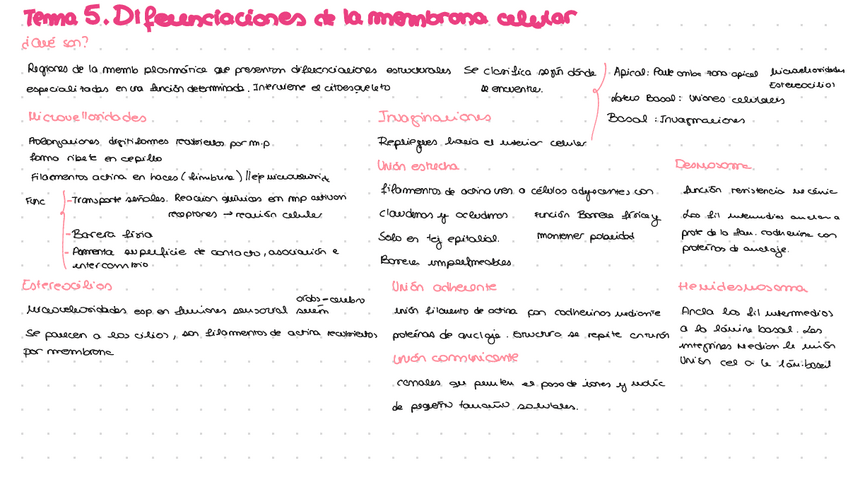 Tema 5. Diferenciaciones de la membrana celular
¿Qué son?
Regiones de la memb plasmática que presentan diferenciaciones estructurales
especializadas en una función determinada. Interviene el citoesqueleto
Se clasifica según dónde
se encuentre.
Apical: Parte zona apical
Microvellosidades
Estereocilios
Latero Basal: Uniones celulares
Basal: Invaginaciones
Microvellosidades
Prolongaciones digitiformes recubiertos por m.p.
forma ribete en cepillo
Filamentos actina en haces (fimbrina) // eje
Func
- Transporte señales. Reacción químicas en mp activan
receptores → reacción celular
- Barrera física
- Aumenta superficie de contacto, asociación e
intercambio.
Estereocilios
microvellosidades esp. en funciones sensorial
oídos-cerebro
Se parecen a los cilios, son filamentos de actina recubiertos
por membrana
Invaginaciones
Repliegues hacia el interior celular
Unión estrecha
filamentos de actina unen a células adyacentes con
claudinas y ocludinas.
Solo en tej epitelial.
Barrera impermeables.
Función Barrera física y
mantener polaridad
Unión adherente
unión filamento de actina con cadherinas mediante
proteínas de anclaje. Estructura se repite
Unión comunicante
canales que permiten el paso de iones y
de pequeño tamaño solubles.
Desmosoma
función resistencia mecánic
Los fil intermedios anclan a
prote de la fam. cadherina con
proteínas de anclaje.
Hemidesmosoma
Ancla los fil intermedios
a la lámina basal. Las
integrinas median la unión
Unión cel a la lám. basal